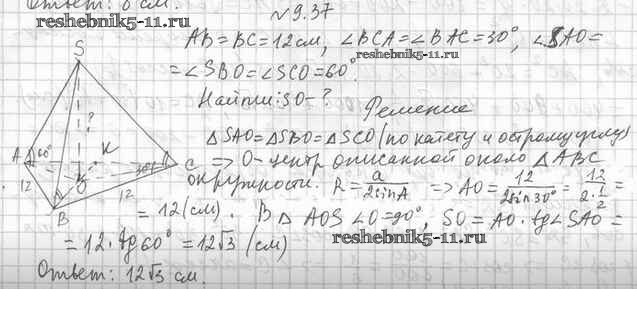 Ответ: 8 см.
reshebnik5-11.ru
№9.37
AB=BC=12см, ∠BCA=∠BAC=30°, ∠SAO=
=∠SBO=∠SCO=60°.
reshebnik5-11.ru
Найти: SO-?
Решение
△SAO=△SBO=△SCO (по катету и острому углу)
=> O-центр описанной около △ABC
окружности. R=a/2sinA => AO=12/2sin30°=12/2·1/2=
=12(см). В △AOS ∠O=90°, SO=AO·tg∠SAO=
=12·tg60°=12√3 (см)
reshebnik5-11.ru
Ответ: 12√3 см.
S
?
A
60°
K
30°
C
12
O
12
B